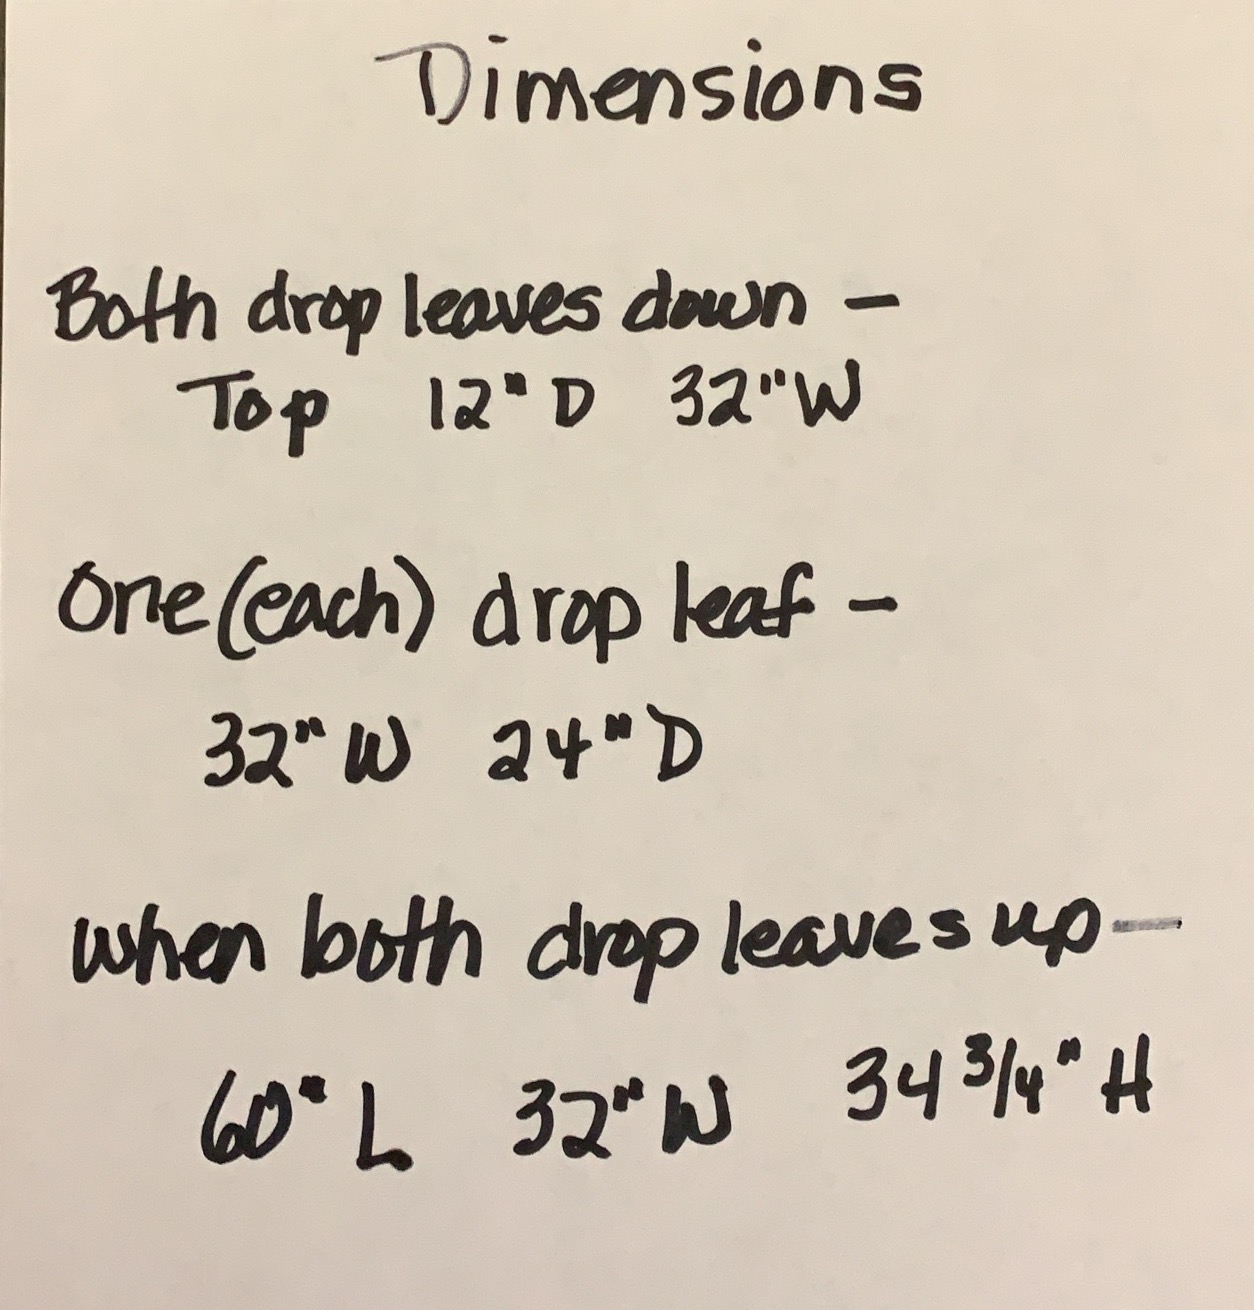 Dimensions
Both drop leaves down -
Top 12" D 32" W
One (each) drop leaf -
32" W 24" D
when both drop leaves up -
60" L 32" W 34 3/4" H